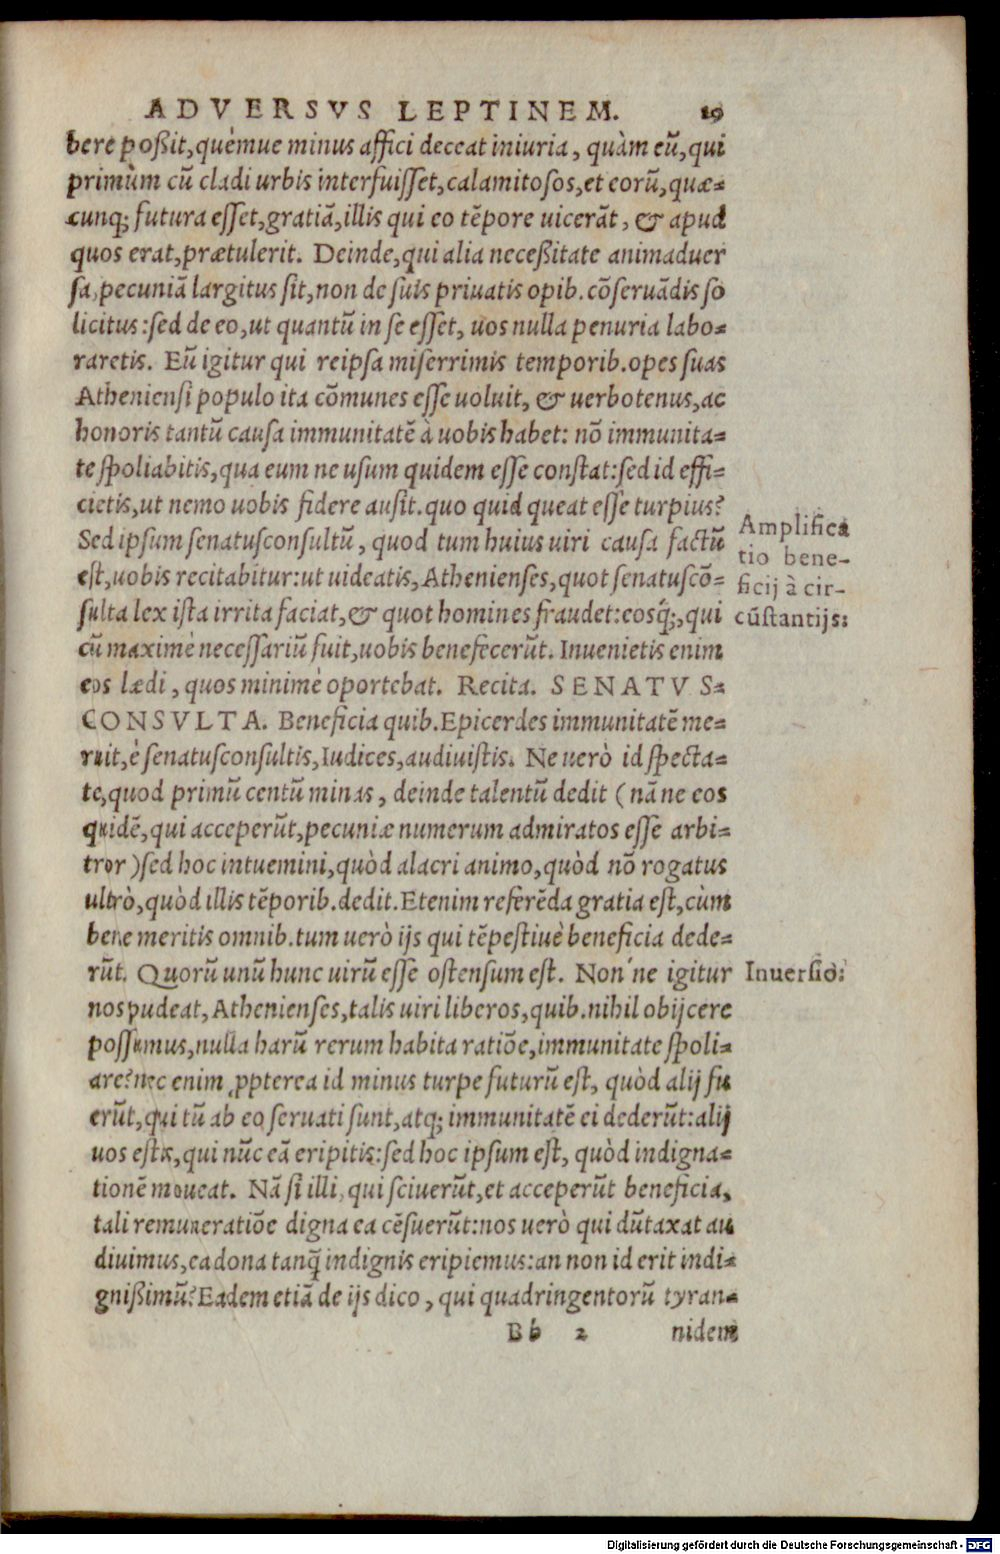 ADVERSVS LEPTINEM. 19
bere poßit, quèmue minus affici deceat iniuria, quàm eũ, qui
primùm cũ cladi urbis interfuiſſet, calamitoſos, et eorũ, quæ-
cunq; futura eſſet, gratiã, illis qui eo tẽpore uicerãt, & apud
quos erat, prætulerit. Deinde, qui alia neceßitate animaduer
ſa, pecuniã largitus ſit, non de ſuis priuatis opib. cõſeruãdis ſo
licitus: ſed de eo, ut quantũ in ſe eſſet, uos nulla penuria labo-
raretis. Eũ igitur qui reipſa miſerrimis temporib. opes ſuas
Athenienſi populo ita cõmunes eſſe uoluit, & uerbotenus, ac
honoris tantũ cauſa immunitatẽ à uobis habet: nõ immunita-
te ſpoliabitis, qua eum ne uſum quidem eſſe conſtat: ſed id effi-
cietis, ut nemo uobis fidere auſit. quo quid queat eſſe turpius?
Sed ipſum ſenatusconſultũ, quod tum huius uiri cauſa factũ
eſt, uobis recitabitur: ut uideatis, Athenienſes, quot ſenatuscõ-
ſulta lex iſta irrita faciat, & quot homines fraudet: eosq́;, qui
cũ maximè neceſſariũ fuit, uobis benefecerũt. Inuenietis enim
eos lædi, quos minimè oportebat. Recita. SENATVS-
CONSVLTA. Beneficia quib. Epicerdes immunitatẽ me-
ruit, è ſenatusconſultis, Iudices, audiuiſtis. Ne uerò id ſpecta-
te, quod primũ centũ minas, deinde talentũ dedit (nã ne eos
quidẽ, qui acceperũt, pecuniæ numerum admiratos eſſe arbi-
tror) ſed hoc intuemini, quòd alacri animo, quòd nõ rogatus
ultrò, quòd illis tẽporib. dedit. Etenim referẽda gratia eſt, cùm
bene meritis omnib. tum uerò ijs qui tẽpeſtiuè beneficia dede-
rũt. Quorũ unũ hunc uirũ eſſe oſtensum eſt. Non'ne igitur
nos pudeat, Athenienſes, talis uiri liberos, quib. nihil obijcere
poſſumus, nulla harũ rerum habita ratiõe, immunitate ſpoli-
are? nec enim ꝓpterea id minus turpe futurũ eſt, quòd alij fu
erũt, qui tũ ab eo ſeruati ſunt, atq; immunitatẽ ei dederũt: alij
uos eſtis, qui nũc eã eripitis: ſed hoc ipſum eſt, quòd indigna-
tionẽ moueat. Nã ſi illi, qui ſciuerũt, et acceperũt beneficia,
tali remuneratiõe digna ea cẽſuerũt: nos uerò qui dũtaxat au
diuimus, ea dona tanq̃ indignis eripiemus: an non id erit indi-
gnißimũ? Eadem etiã de ijs dico, qui quadringentorũ tyran-
Bb 2 nidem
Amplifica
tio bene-
ficij à cir-
cũſtantijs:
Inuerſio:
Digitalisierung gefördert durch die Deutsche Forschungsgemeinschaft - DFG